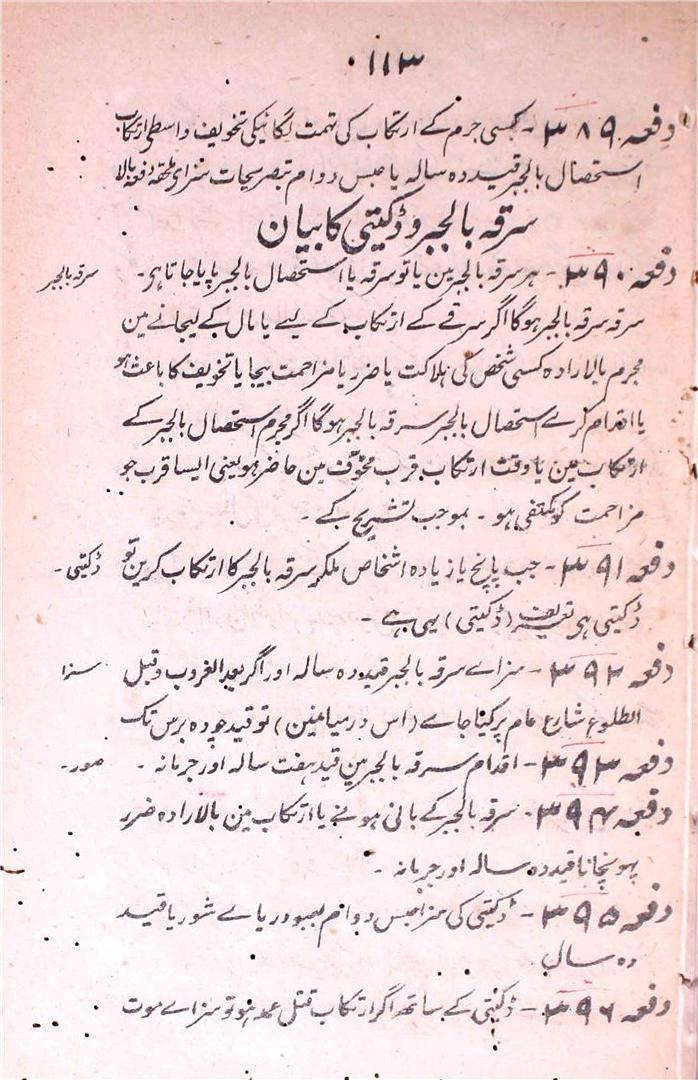 ۱۱۳
دفعہ ۳۸۹۔ کسی جرم کے ارتکاب کی تہمت لگانیکی تخویف واسطے ارتکاب
استحصال بالجبر قید دہ سالہ یا حبس دوام تبصریحات سزای ملحقہ دفعہ بالا
سرقہ بالجبر و ڈکیتی کا بیان
دفعہ ۳۹۰۔ ہر سرقہ بالجبر مین یا تو سرقہ یا استحصال بالجبر پایا جاتا ہی۔
سرقہ بالجبر
سرقہ سرقہ بالجبر ہوگا اگر سرقے کے ارتکاب کے لیے یا مال کے لیجانے مین
مجرم بالارادہ کسی شخص کی ہلاکت یا ضرر یا مزاحمت بیجا یا تخویف کا باعث ہو
یا اقدام کرے استحصال بالجبر سرقہ بالجبر ہوگا اگر مجرم استحصال بالجبر کے
ارتکاب مین یا وقت ارتکاب قرب مخوّف مین حاضر ہو یعنی ایسا قرب جو
مزاحمت کو مکتفی ہو ۔ بموجب تشریح کے ۔
دفعہ ۳۹۱۔ جب پانچ یا زیادہ اشخاص ملکر سرقہ بالجبر کا ارتکاب کرین تو
ڈکیتی۔
ڈکیتی ہی تعریف (ڈکیتی) یہی ہے ۔
دفعہ ۳۹۲۔ سزاے سرقہ بالجبر قید دہ سالہ اور اگر بعد الغروب و قبل
سزا
الطلوع شارع عام پر کیا جاے (اس درمیا مین) تو قید چودہ برس تک
دفعہ ۳۹۳۔ اقدام سرقہ بالجبر مین قید ہفت سالہ اور جرمانہ ۔
دفعہ ۳۹۴۔ سرقہ بالجبر کے بانی ہونے یا ارتکاب مین بالارادہ ضرر
پہونچانا قید دہ سالہ اور جرمانہ ۔
دفعہ ۳۹۵۔ ڈکیتی کی سزا حبس دوام بعبور دریاے شور یا قید
دہ سال
دفعہ ۳۹۶۔ ڈکیتی کے ساتھ اگر ارتکاب قتل عمد ہو تو سزاے موت